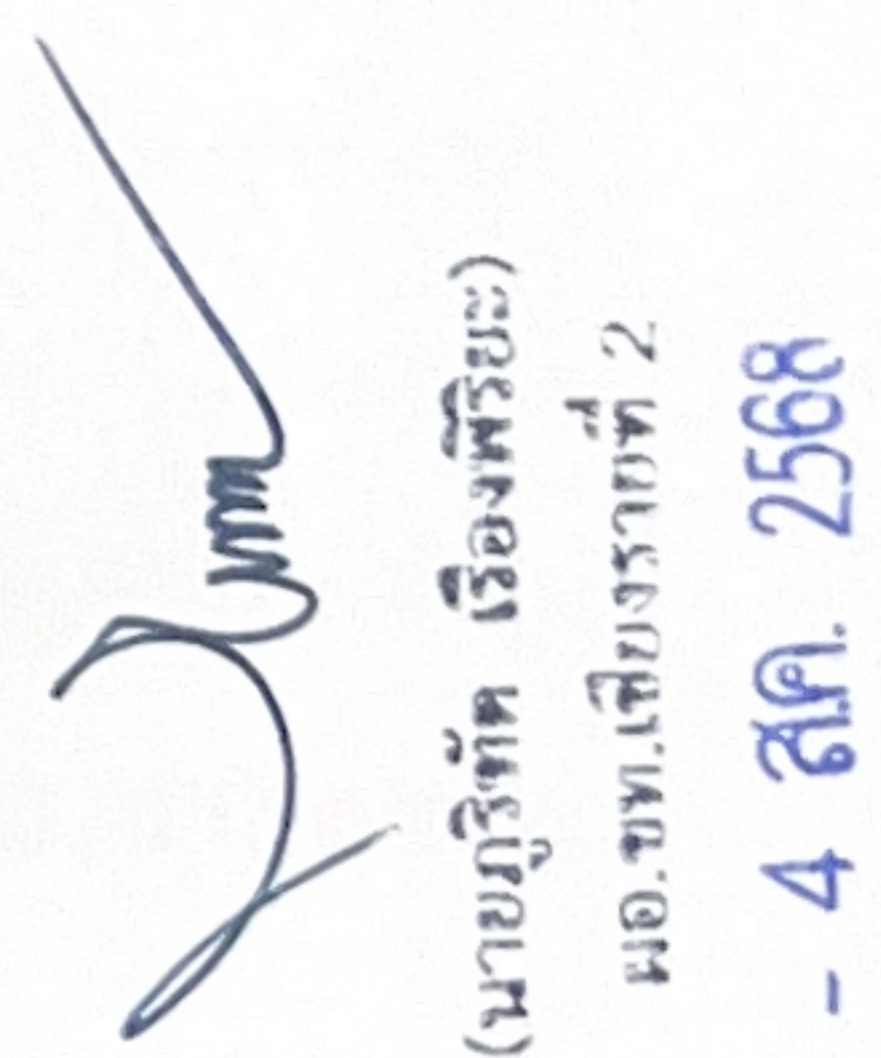 (นายภูริทัต เรืองพิริยะ)
ผอ.ขท.เชียงรายที่ 2
- 4 ส.ค. 2568